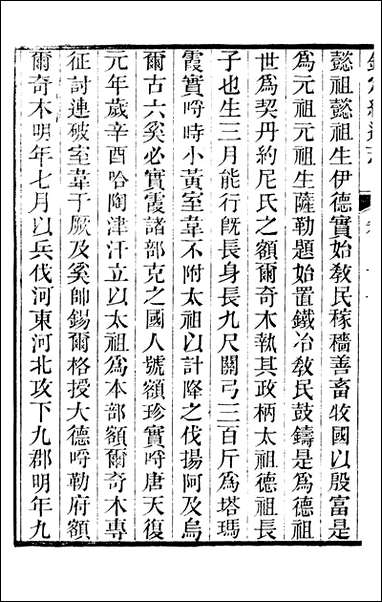 懿祖懿祖生伊德實始敎民稼穡善畜牧國以殷富是
爲元祖元祖生薩勒題始置鐵冶敎民鼓鑄是爲德祖
世爲契丹約尼氏之額爾奇木執其政柄太祖德祖長
子也生三月能行旣長身長九尺關弓三百斤爲塔瑪
霞實哷時小黃室韋不附太祖以計降之伐揚阿及烏
爾古六奚必實霞諸部克之國人號額珍實哷唐天復
元年歲辛酉哈陶津汗立以太祖爲本部額爾奇木專
征討連破室韋于厥及奚帥錫爾格授大德哷勒府額
爾奇木明年七月以兵伐河東河北攻下九郡明年九